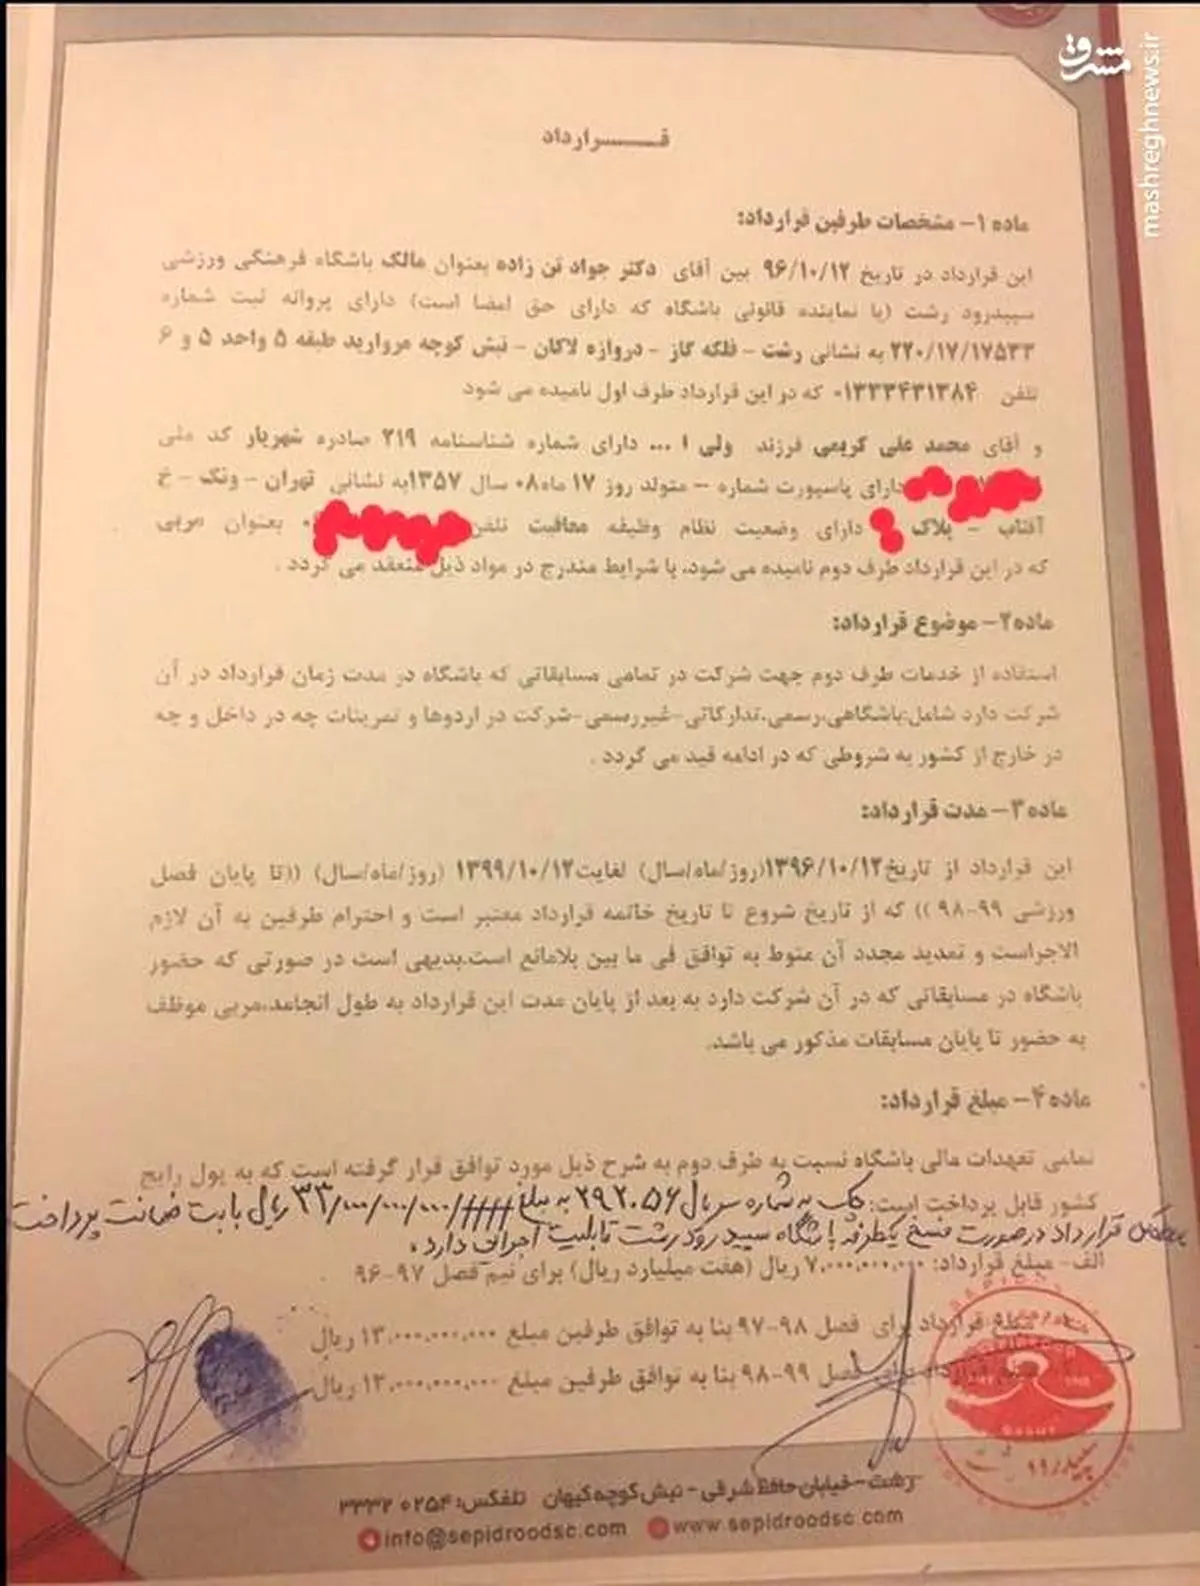 مشرق
mashreghnews.ir
قـــــرارداد
ماده ۱- مشخصات طرفین قرارداد:
این قرارداد در تاریخ ۹۶/۱۰/۱۲ بین آقای دکتر جواد تن زاده بعنوان مالک باشگاه فرهنگی ورزشی
سپیدرود رشت (یا نماینده قانونی باشگاه که دارای حق امضا است) دارای پروانه ثبت شماره
۲۲۰/۱۷/۱۷۵۳۳ به نشانی رشت - فلکه گاز - دروازه لاکان - نبش کوچه مروارید طبقه ۵ واحد ۵ و ۶
تلفن ۰۱۳۳۳۴۳۱۳۸۴ که در این قرارداد طرف اول نامیده می شود
و آقای محمد علی کریمی فرزند ولی ا ... دارای شماره شناسنامه ۲۱۹ صادره شهریار کد ملی
دارای پاسپورت شماره - متولد روز ۱۷ ماه ۰۸ سال ۱۳۵۷ به نشانی تهران - ونک - خ
آفتاب - پلاک دارای وضعیت نظام وظیفه معافیت تلفن بعنوان مربی
که در این قرارداد طرف دوم نامیده می شود، با شرایط مندرج در مواد ذیل منعقد می گردد .
ماده ۲- موضوع قرارداد:
استفاده از خدمات طرف دوم جهت شرکت در تمامی مسابقاتی که باشگاه در مدت زمان قرارداد در آن
شرکت دارد شامل:باشگاهی،رسمی،تدارکاتی-غیررسمی-شرکت در اردوها و تمرینات چه در داخل و چه
در خارج از کشور به شروطی که در ادامه قید می گردد .
ماده ۳- مدت قرارداد:
این قرارداد از تاریخ ۱۳۹۶/۱۰/۱۲(روز/ماه/سال) لغایت ۱۳۹۹/۱۰/۱۲ (روز/ماه/سال) ((تا پایان فصل
ورزشی ۹۹-۹۸ )) که از تاریخ شروع تا تاریخ خاتمه قرارداد معتبر است و احترام طرفین به آن لازم
الاجراست و تمدید مجدد آن منوط به توافق فی ما بین بلامانع است.بدیهی است در صورتی که حضور
باشگاه در مسابقاتی که در آن شرکت دارد به بعد از پایان مدت این قرارداد به طول انجامد،مربی موظف
به حضور تا پایان مسابقات مذکور می باشد.
ماده ۴- مبلغ قرارداد:
تمامی تعهدات مالی باشگاه نسبت به طرف دوم به شرح ذیل مورد توافق قرار گرفته است که به پول رایج
کشور قابل پرداخت است: چک به شماره سریال ۲۹۲۰۵۶ به مبلغ ۳۳/۰۰۰/۰۰۰/۰۰۰ ریال بابت ضمانت پرداخت
قرارداد در صورت فسخ یکطرفه باشگاه سپیدرود رشت قابلیت اجرائی دارد.
الف- مبلغ قرارداد: ۷،۰۰۰،۰۰۰،۰۰۰ ریال (هفت میلیارد ریال) برای نیم فصل ۹۷-۹۶
مبلغ قرارداد برای فصل ۹۸-۹۷ بنا به توافق طرفین مبلغ ۱۳،۰۰۰،۰۰۰،۰۰۰ ریال
فصل ۹۹-۹۸ بنا به توافق طرفین مبلغ ۱۳،۰۰۰،۰۰۰،۰۰۰ ریال
رشت - خیابان حافظ شرقی - نبش کوچه کیهان تلفکس: ۳۳۳۲۰۲۵۴
info@sepidroodsc.com www.sepidroodsc.com